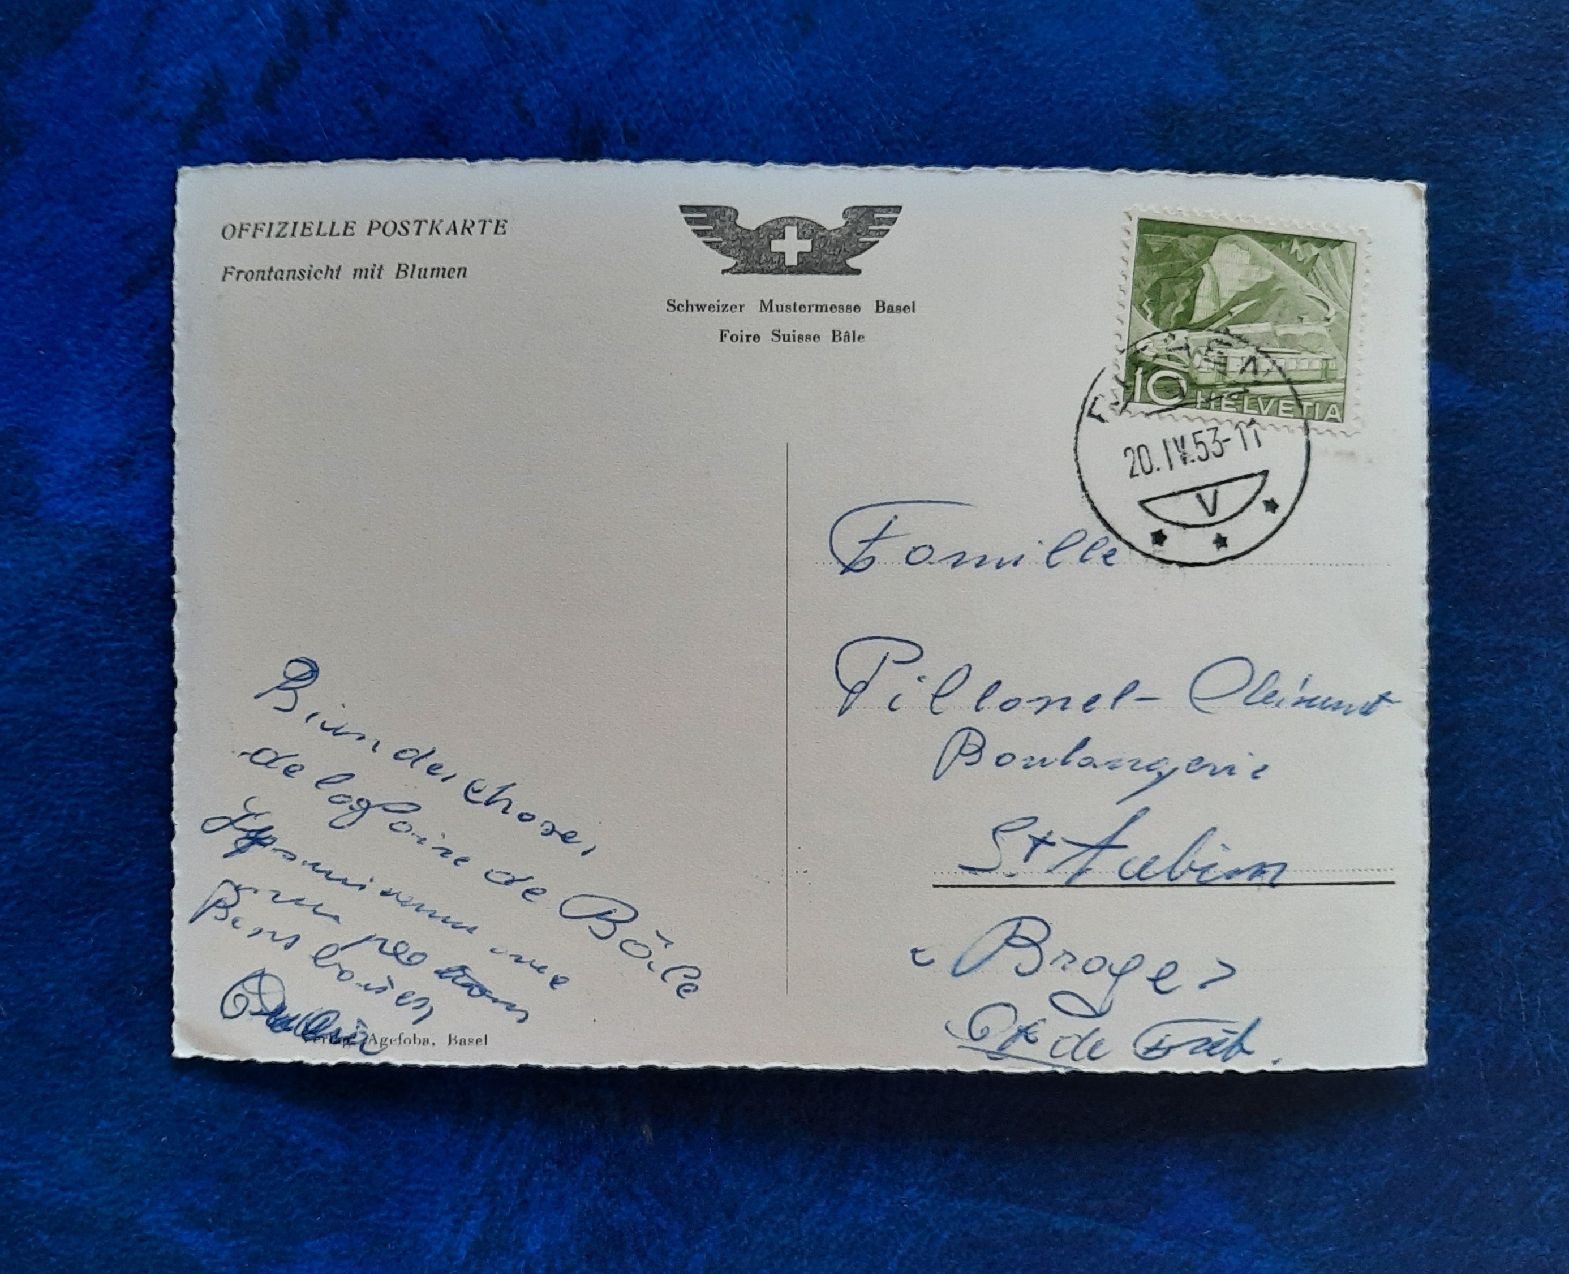 OFFIZIELLE POSTKARTE
Frontansicht mit Blumen
Schweizer Mustermesse Basel
Foire Suisse Bâle
10 HELVETIA
20.IV.53-11
V
Famille
Pillonel-Clément
Boulangerie
St Aubin
Broye
Ct de Frib.
Bien des choses
de la foire de Bâle
Bons baisers
Agefoba, Basel